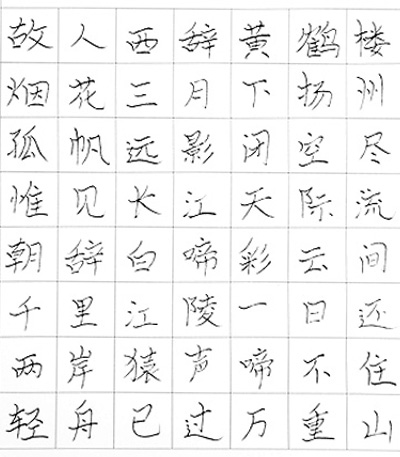 故人西辞黄鹤楼
烟花三月下扬州
孤帆远影闭空尽
惟见长江天际流
朝辞白啼彩云间
千里江陵一日还
两岸猿声啼不住
轻舟已过万重山